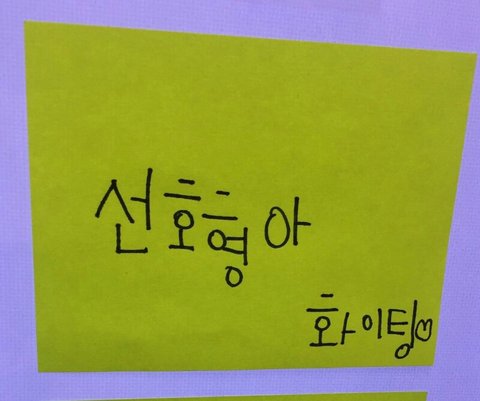 선호형아
화이팅♡